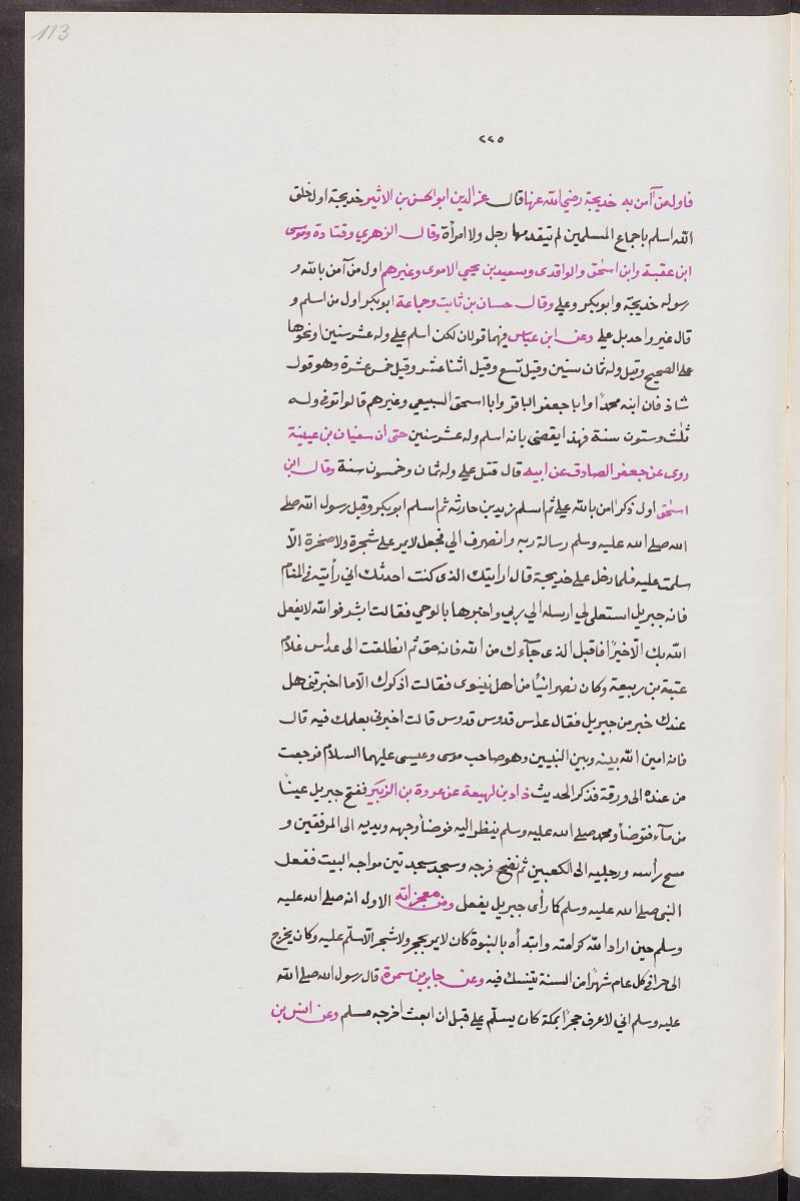 113
٢٢٥
فاول من آمن به خديجة رضي الله عنها قال عزالدين ابوالحسن بن الاثير خديجة اول خلق
الله اسلم باجماع المسلمين لم يتقدمها رجل ولا امرأة وقال الزهري وقتادة وموسى
ابن عقبة وابن اسحٰق والواقدى وسعيد بن يحيي الاموى وغيرهم اول من آمن بالله و
رسوله خديجة وابوبكر وعلي وقال حسان بن ثابت وجماعة ابوبكر اول من اسلم و
قال غير واحد بل علي وعن ابن عباس فيهما قولان لكن اسلم علي وله عشر سنين اونحوها
على الصحيح وقيل وله ثمان سنين وقيل تسع وقيل اثنا عشر وقيل خمس عشرة وهو قول
شاذ فان ابنه محمدًا وابا جعفر الباقر وابا اسحق السبيعي وغيرهم قالوا توفي وله
ثلٰث وستون سنة فهذا يقضى بانه اسلم وله عشر سنين حتى ان سفيان بن عيينة
روى عن جعفر الصادق عن ابيه قال قتل علي وله ثمان وخمسون سنة وقال ابن
اسحٰق اول ذكر امن بالله علي ثم اسلم زيد بن حارثه ثم اسلم ابوبكر وقبل رسول الله صلى
الله صلى الله عليه وسلم رسالة ربه وانصرف الي فجعل لايمر على شجرة ولا صخرة الاّ
سلمت عليه فلما دخل على خديجة قال ارايتك الذى كنت احدثك اني رأيته في المنام
فانه جبريل استعلى لي ارسله الي ربي واخبرها بالوحي فقالت ابشر فوالله لايفعل
الله بك الاّ خيرًا فاقبل الذى جآءك من الله فانه حق ثم انطلقت الى عداس غلام
عتبة بن ربيعة وكان نصرانيًا من اهل نينوى فقالت اذكرك الاّ ما اخبرتنى هل
عندك خبر من جبريل فقال عداس قدوس قدوس قالت اخبرني بعلمك فيه قال
فانه امين الله بينه وبين النبيين وهو صاحب موسى وعيسى عليهما السلام فرجعت
من عنده الى ورقة فذكر الحديث زاد بن لهيعة عن عروة بن الزبير ففتح جبريل عينًا
من مآء فتوضأ ومحمد صلى الله عليه وسلم ينظر اليه فوضأ وجهه ويديه الى المرفقين و
مسح رأسه ورجليه الى الكعبين ثم نضح فرجه وسجد سجدتين مواجه البيت ففعل
النبي صلى الله عليه وسلم كما رأى جبريل يفعل ومن معجزاته الاول انه صلى الله عليه
وسلم حين اراد الله كرامته وابتدأه بالنبوة كان لايمر بحجر ولا شجر الاّ سلّم عليه وكان يخرج
الى حرا في كل عام شهرًا من السنة يتنسك فيه وعن جابر بن سمرة قال رسول الله صلى الله
عليه وسلم اني لاعرف حجرًا بمكة كان يسلّم علي قبل ان ابعث اخرجه مسلم وعن انس بن